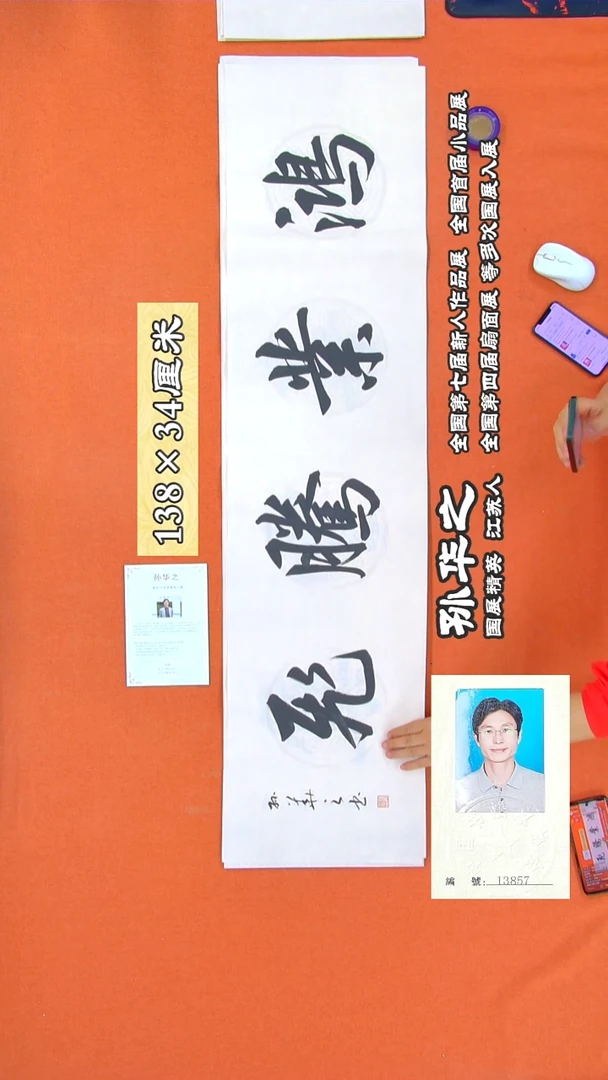 138×34厘米
孙华之
鴻業騰飛
孙華之书
孙华之
国展精英 江苏人
全国第七届新人作品展 全国首届小品展
全国第四届扇面展 等多次国展入展
編 號:13857